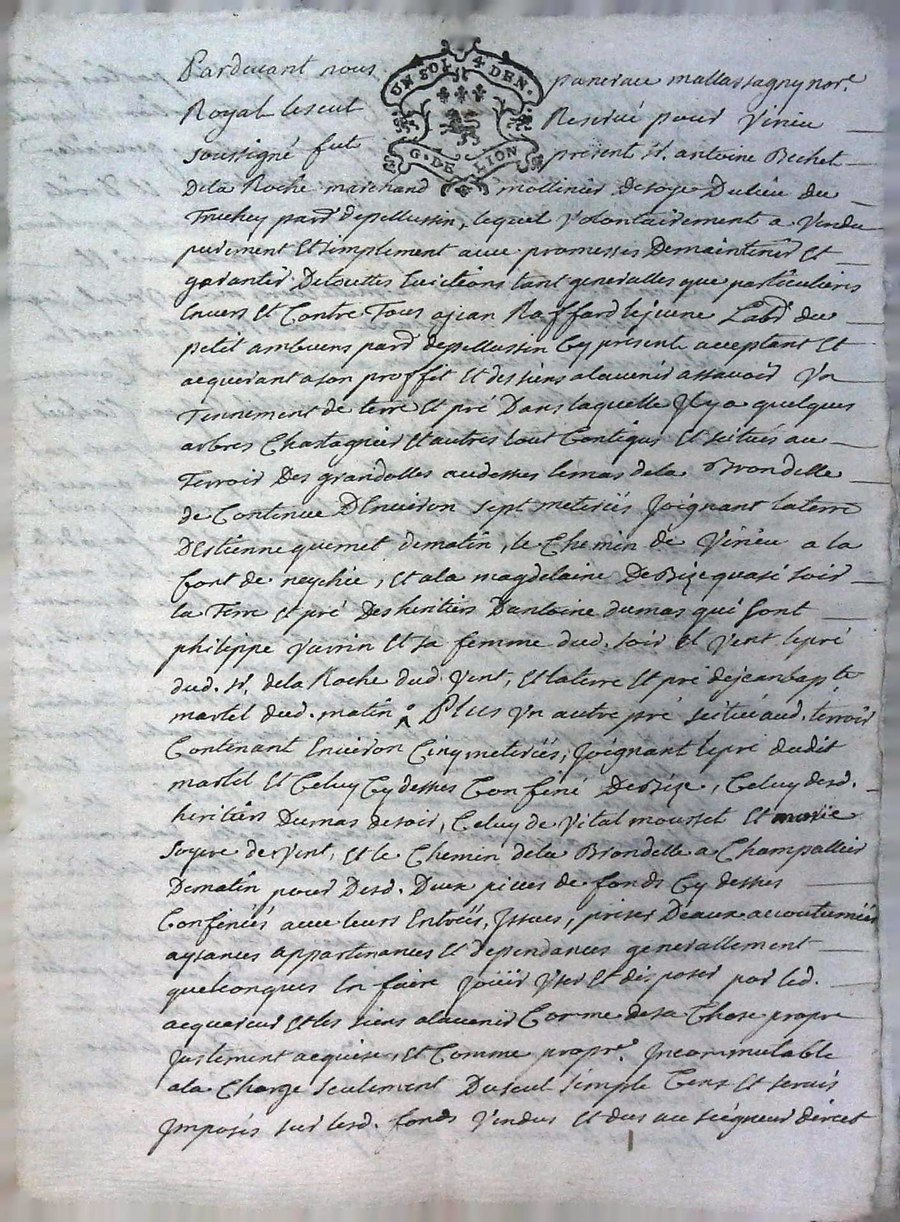 Pardevant nous pancrace mallassagny nore.
UN SOL 4 DEN.
Royal le seul Reservé pour Virieu
soussigné fut present Sr. antoine Bechet
G. DE LION
De la Roche marchand mollinier de soye Du lieu du
Truchey parr. de pellussin, lequel Volontairement a Vendu
purement Et simplement avec promesses De maintenir Et
garantir De touttes Evictions tant generalles que particulieres
Envers Et Contre Tous a jean Raffard le jeune Labr. du
petit ambuens parr. de pellussin Cy present acceptant Et
acquerant a son proffit Et des siens a lavenir assavoir Vn
Tennement de terre Et pré Dans laquelle Jl y a quelques
arbres Chastagnier Et autres tout Contigus Et scitués au
Terroir Des grandolles au dessus le mas de la Brondelle
de Contenue D'Environ sept meteriés Joignant la terre
D'Estienne quemet de matin, le Chemin de Virieu a la
font de neychie, Et a la magdelaine De Bize quasi soir
la Terre Et pré Des heritiers D'antoine dumas qui sont
philippe Varrin Et sa femme dud. soir Et Vent le pré
dud. Sr. de la Roche dud. Vent, Et la terre Et pré de jean bapte
martel dud. matin. Plus Vn autre pré scitué aud. terroir
Contenant Environ Cinq meteriés, Joignant le pré dudit
martel Et Celuy Cy dessus Confiné De Bize, Celuy desd.
heritiers Dumas de soir, Celuy de Vital mousset Et marie
soyere de Vent, Et le Chemin de la Brondelle a Champallier
De matin pour Desd. Deux pieces de fonds Cy dessus
Confinées avec leurs Entrées, Jssues, prises D'eaux accoutumées
aysances appartenances Et dependances generallement
quelconques En faire Joüir Vser Et disposer par led.
acquereur Et les siens a lavenir Comme de sa Chose propre
Justement acquise, Et Comme propre. Jncommutable
a la Charge seulement Du seul simple Cens Et servis
Jmposés sur lesd. fonds Vendus Et dus au seigneur direct